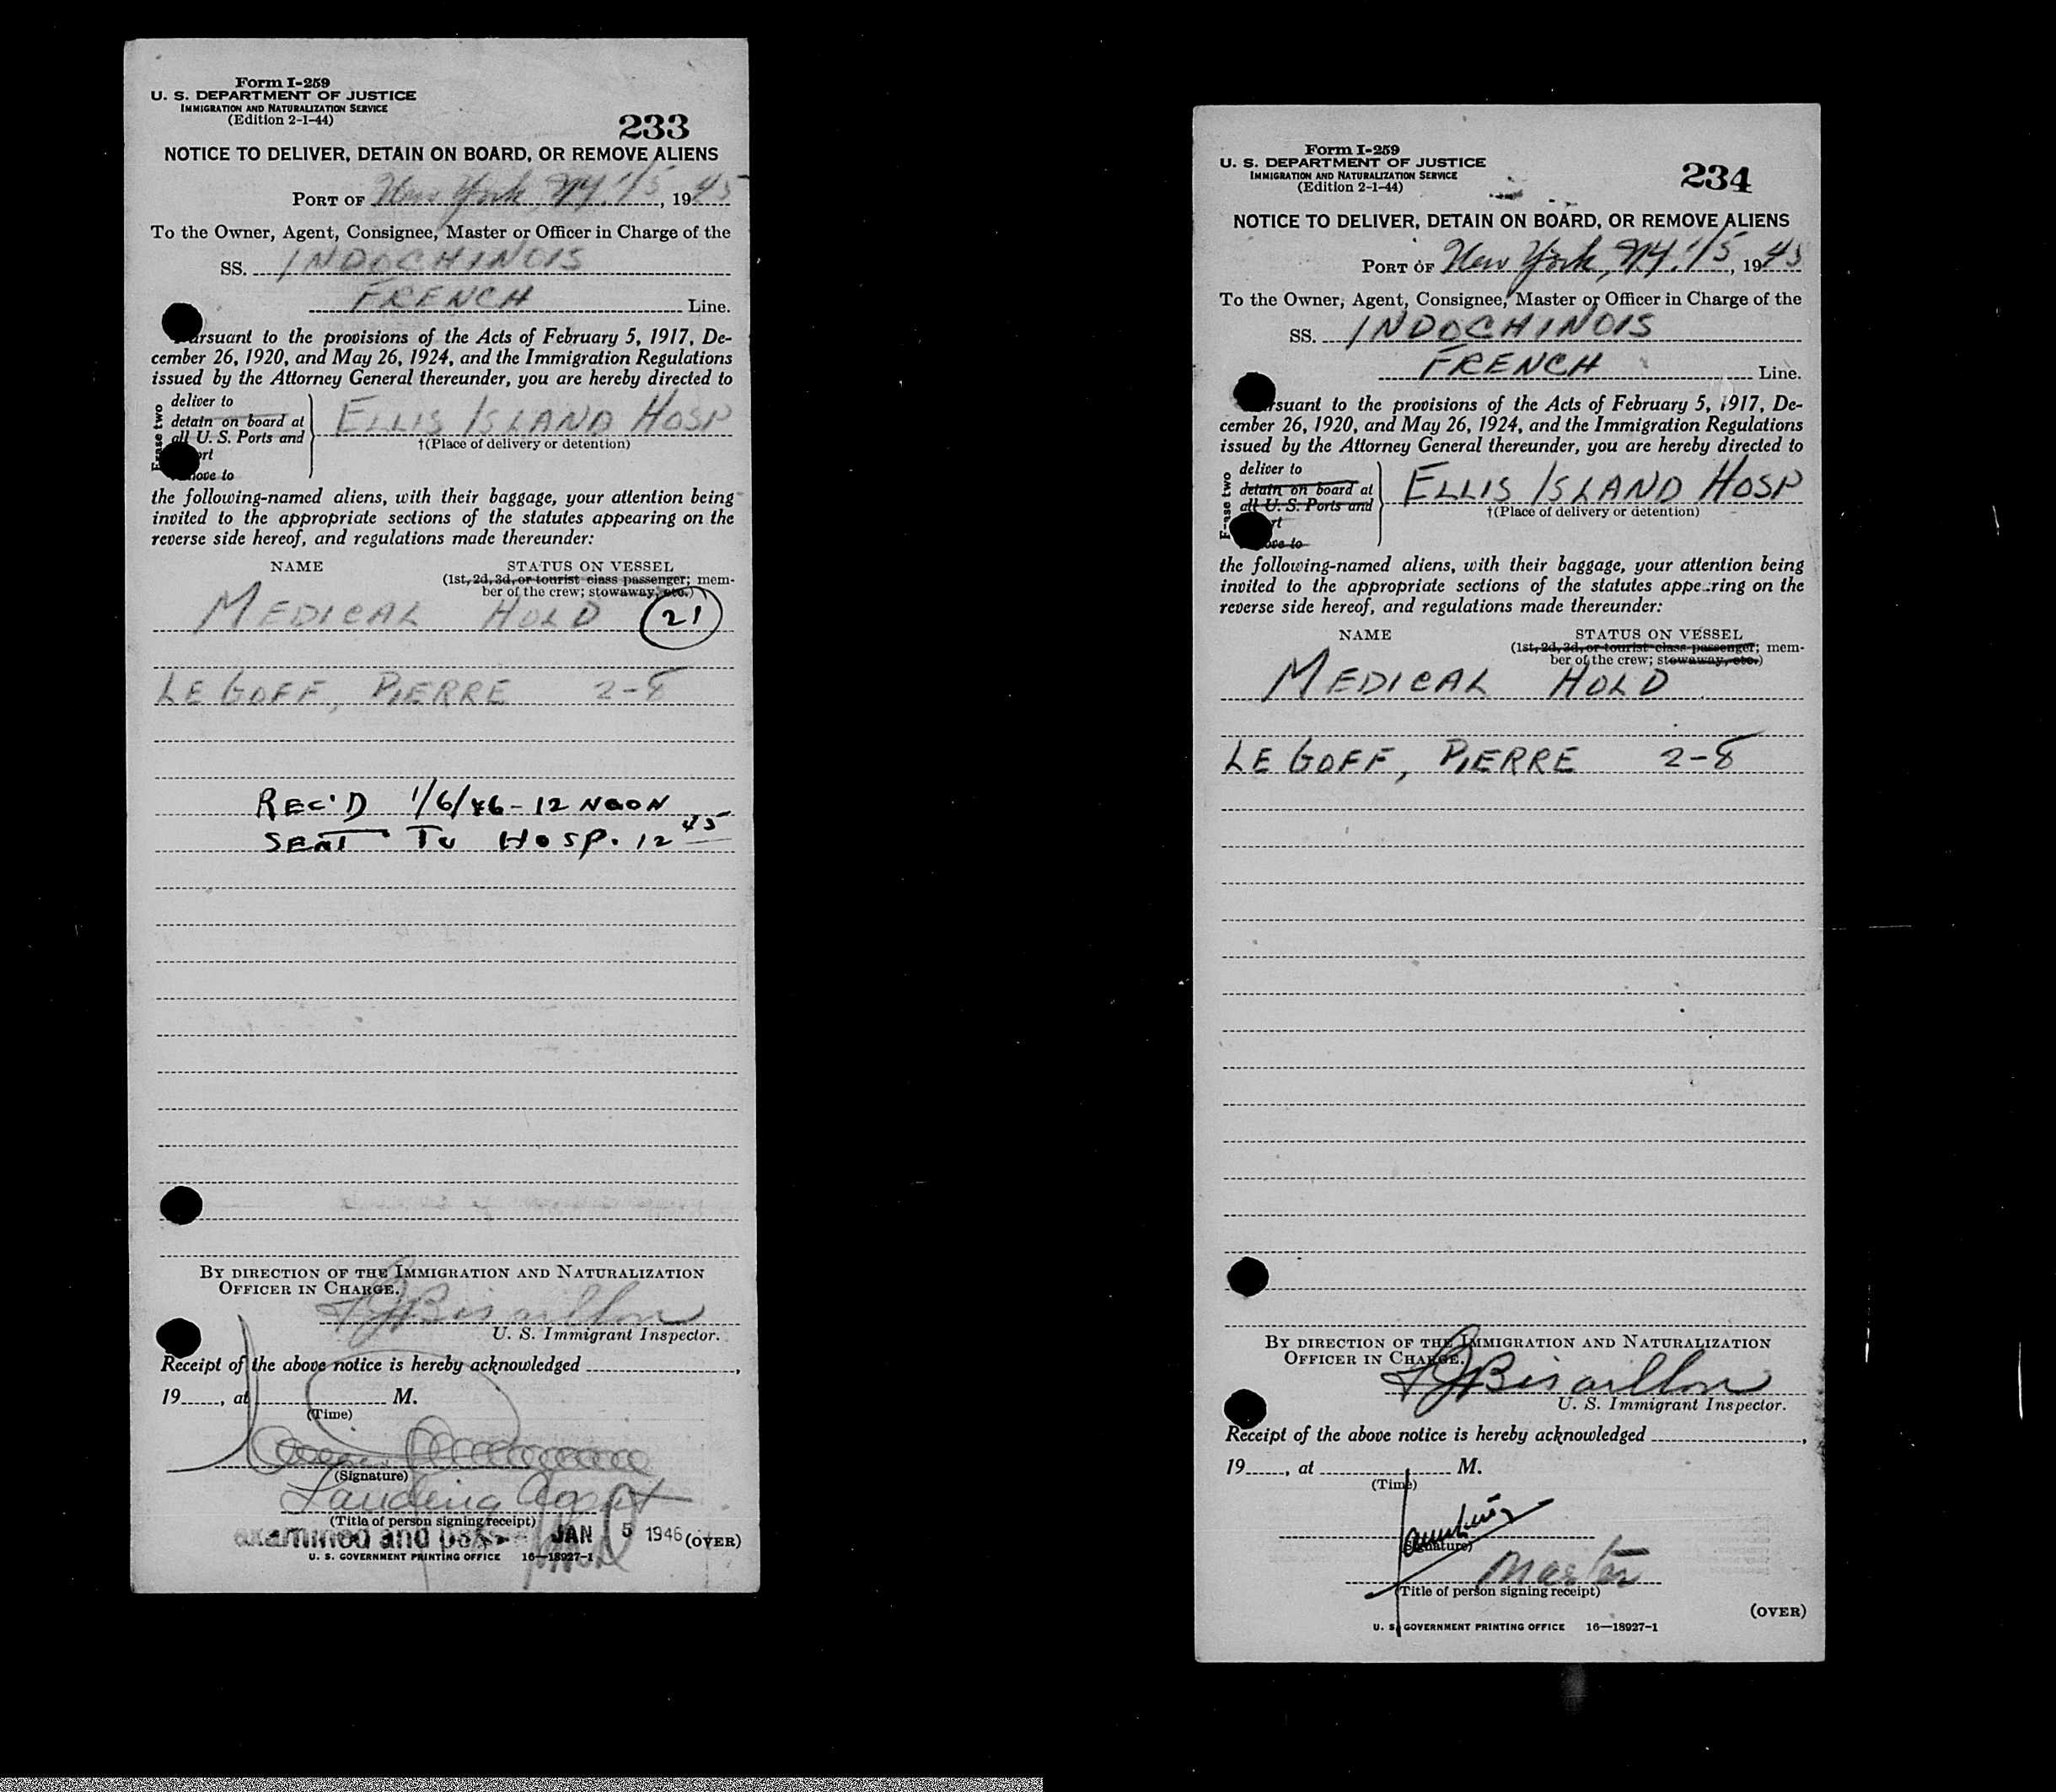 Form I-259
U. S. DEPARTMENT OF JUSTICE
IMMIGRATION AND NATURALIZATION SERVICE
(Edition 2-1-44)
233
NOTICE TO DELIVER, DETAIN ON BOARD, OR REMOVE ALIENS
PORT OF New York, N.Y. 1/5, 1945
To the Owner, Agent, Consignee, Master or Officer in Charge of the
SS. INDOCHINOIS
FRENCH Line.
rsuant to the provisions of the Acts of February 5, 1917, De-
cember 26, 1920, and May 26, 1924, and the Immigration Regulations
issued by the Attorney General thereunder, you are hereby directed to
deliver to
detain on board at
all U. S. Ports and
ELLIS ISLAND HOSP
†(Place of delivery or detention)
the following-named aliens, with their baggage, your attention being
invited to the appropriate sections of the statutes appearing on the
reverse side hereof, and regulations made thereunder:
NAME STATUS ON VESSEL
(1st, 2d, 3d, or tourist class passenger; mem-
ber of the crew; stowaway, etc.)
MEDICAL HOLD 21
LE GOFF, PIERRE 2-8
REC'D 1/6/46 - 12 NOON
SENT TO HOSP. 12 45
BY DIRECTION OF THE IMMIGRATION AND NATURALIZATION
OFFICER IN CHARGE.
Bisaillon
U. S. Immigrant Inspector.
Receipt of the above notice is hereby acknowledged
19, at M.
(Time)
(Signature)
Landing Agent
(Title of person signing receipt)
examined and JAN 5 1946 (OVER)
U. S. GOVERNMENT PRINTING OFFICE 16—18927-1
Form I-259
U. S. DEPARTMENT OF JUSTICE
IMMIGRATION AND NATURALIZATION SERVICE
(Edition 2-1-44)
234
NOTICE TO DELIVER, DETAIN ON BOARD, OR REMOVE ALIENS
PORT OF New York, N.Y. 1/5, 1945
To the Owner, Agent, Consignee, Master or Officer in Charge of the
SS. INDOCHINOIS
FRENCH Line.
rsuant to the provisions of the Acts of February 5, 1917, De-
cember 26, 1920, and May 26, 1924, and the Immigration Regulations
issued by the Attorney General thereunder, you are hereby directed to
deliver to
detain on board at
all U. S. Ports and
ELLIS ISLAND HOSP
†(Place of delivery or detention)
the following-named aliens, with their baggage, your attention being
invited to the appropriate sections of the statutes appearing on the
reverse side hereof, and regulations made thereunder:
NAME STATUS ON VESSEL
(1st, 2d, 3d, or tourist class passenger; mem-
ber of the crew; stowaway, etc.)
MEDICAL HOLD
LE GOFF, PIERRE 2-8
BY DIRECTION OF THE IMMIGRATION AND NATURALIZATION
OFFICER IN CHARGE.
Bisaillon
U. S. Immigrant Inspector.
Receipt of the above notice is hereby acknowledged
19, at M.
(Time)
(Signature)
Master
(Title of person signing receipt)
(OVER)
U. S. GOVERNMENT PRINTING OFFICE 16—18927-1